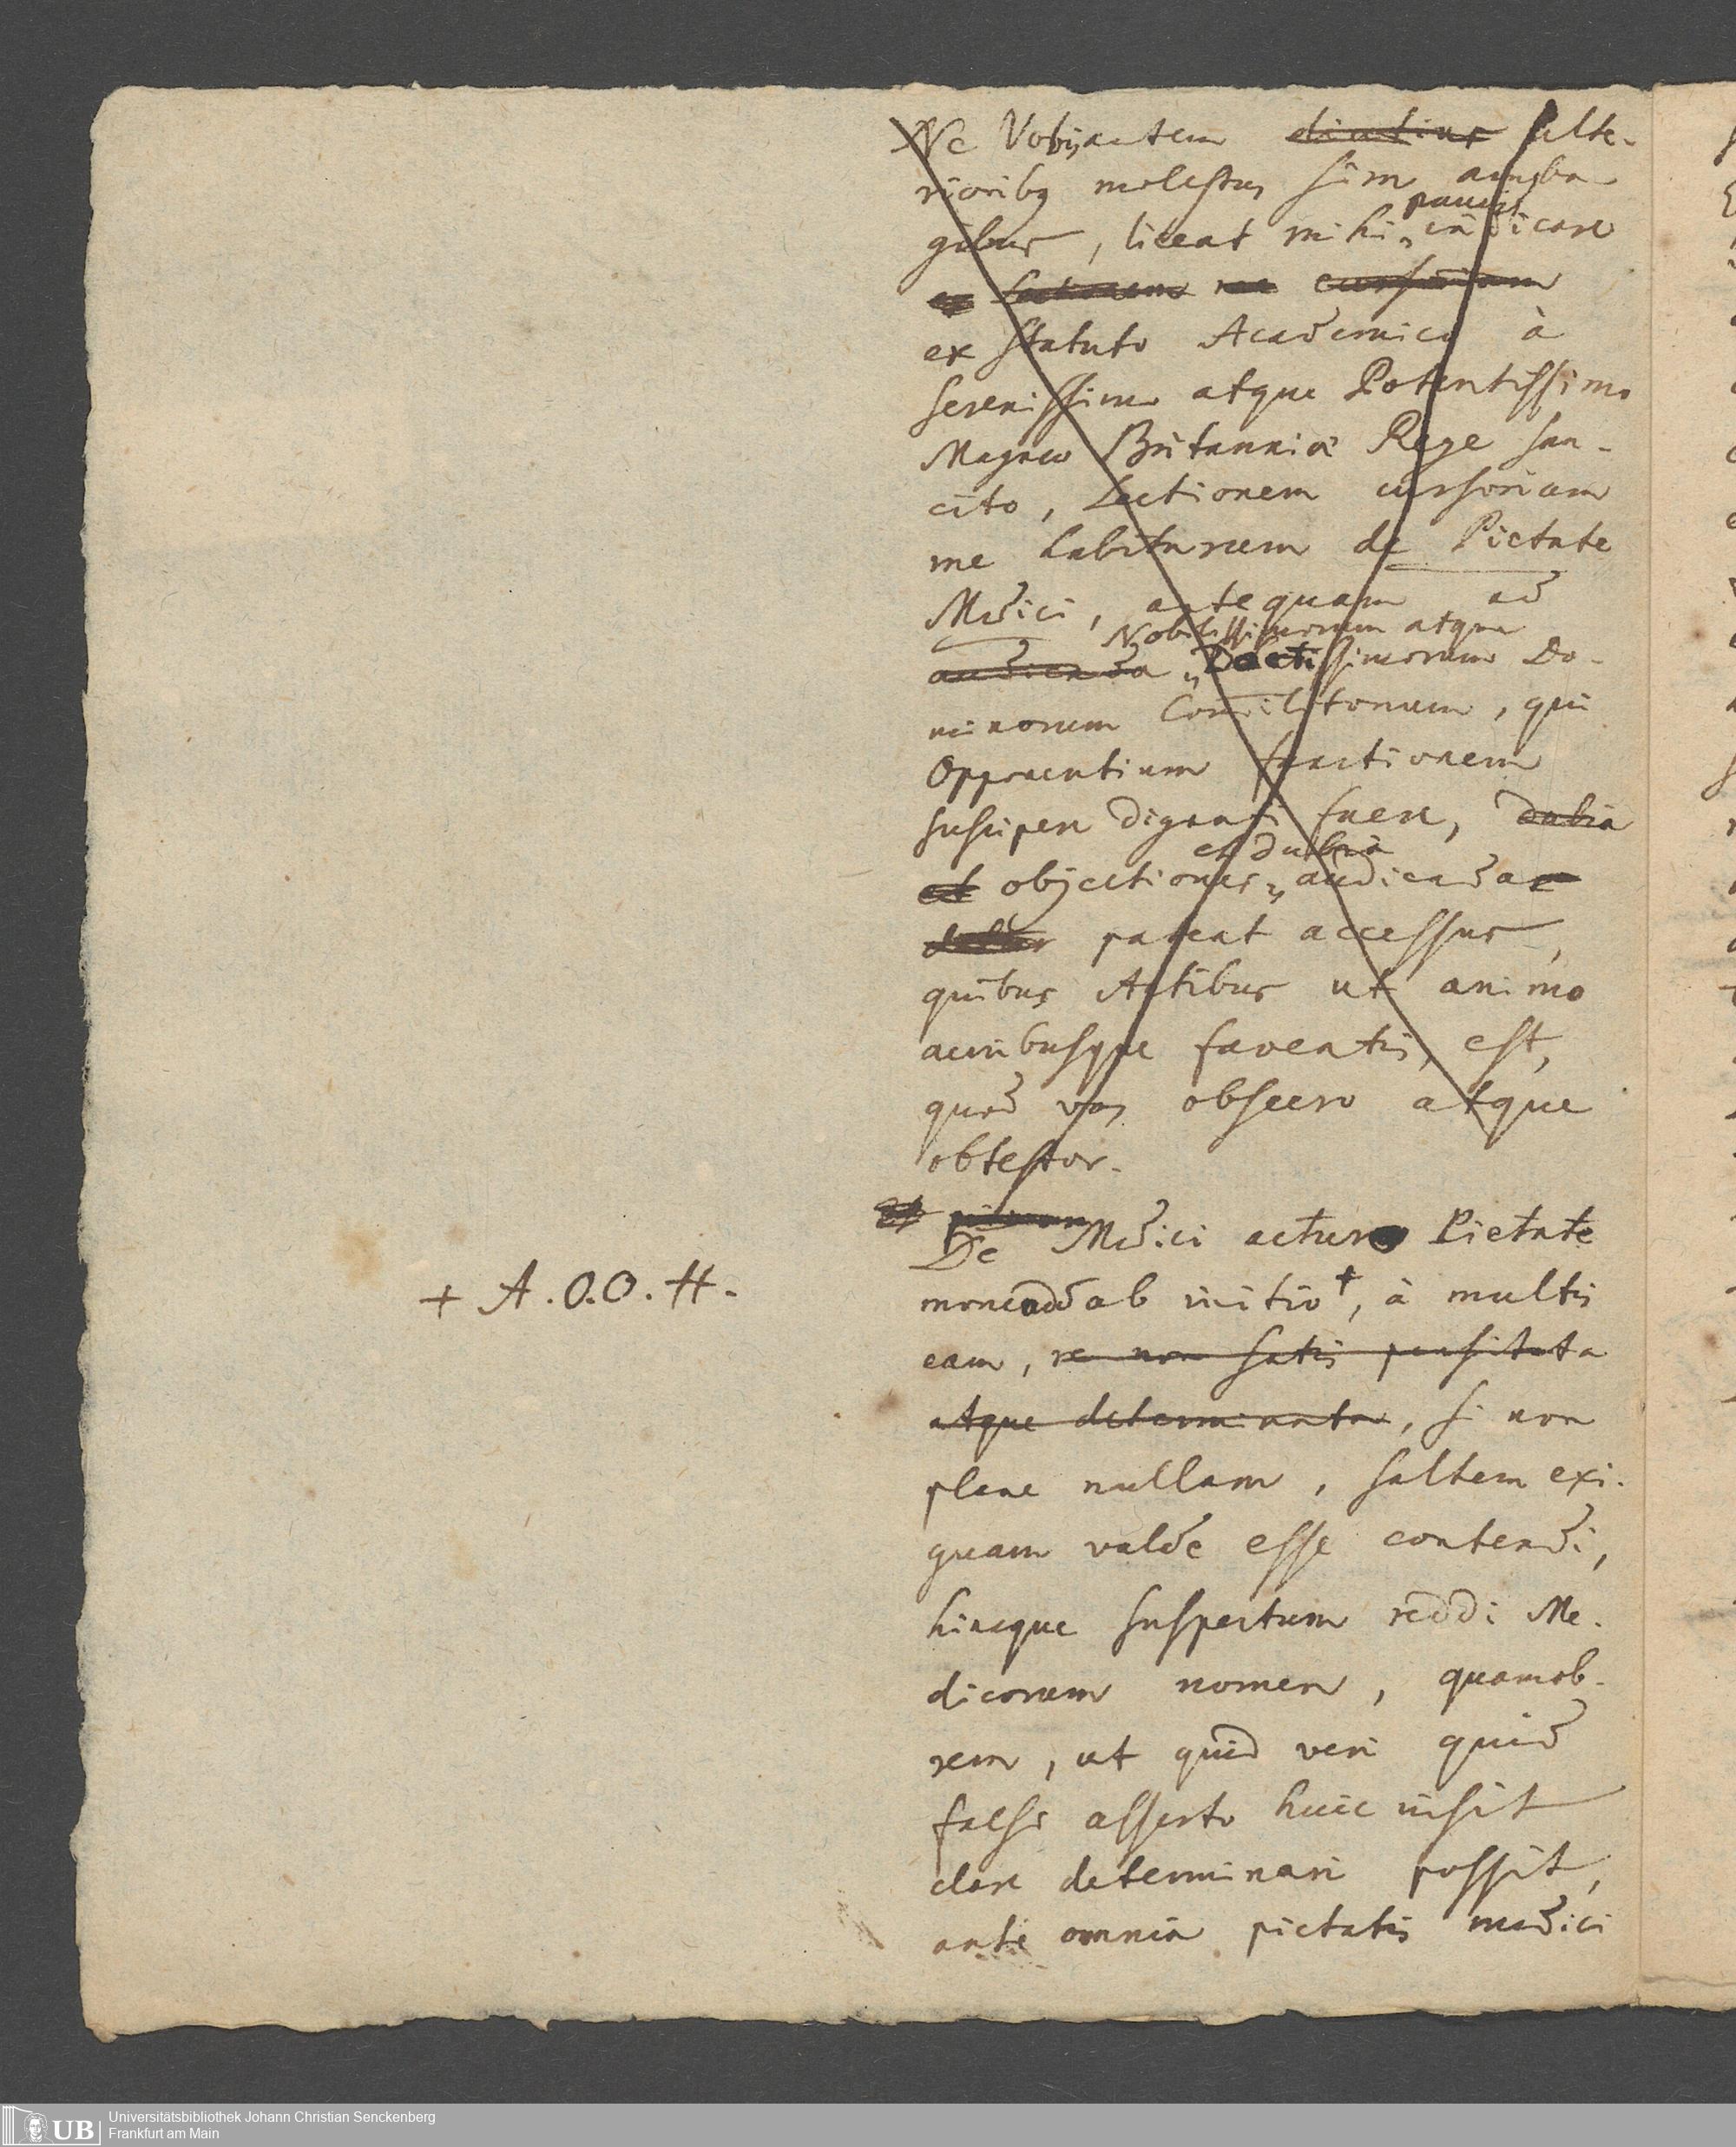 Ne Vobis autem diutius ulte-
rioribq molestus sim amba
gibus, liceat mihi paucis indicare
ex lectionem me cursoriam
ex statuto Academico à
serenissimo atque Potentissimo
Magnae Britanniae Rege san-
cito, Lectionem cursoriam
me habiturum de Pietate
Medici, antequam ad
Nobilissimorum atque
audienda Doctissimorum Do-
minorum Comilitonum, qui
Opponentium functionem
suscipere dignati fuere, dubia
et dubia
et objectiones audiendas
pateat accessus,
quibus Actibus ut animo
auribusque faveatis, est,
quod vos obsecro atque
obtestor.
De Medici acturo Pietate
+ A. O. O. H.
monend ab initio +, à multis
eam, re non satis pensitata
atque determinata, si non
plane nullam, saltem exi-
guam valde esse contendi,
hincque suspectum reddi Me-
dicorum nomen, quamob-
rem, ut quid veri quid
falsi asserto huic insit
clare determinari possit,
ante omnia pietatis medici
UB Universitätsbibliothek Johann Christian Senckenberg
Frankfurt am Main